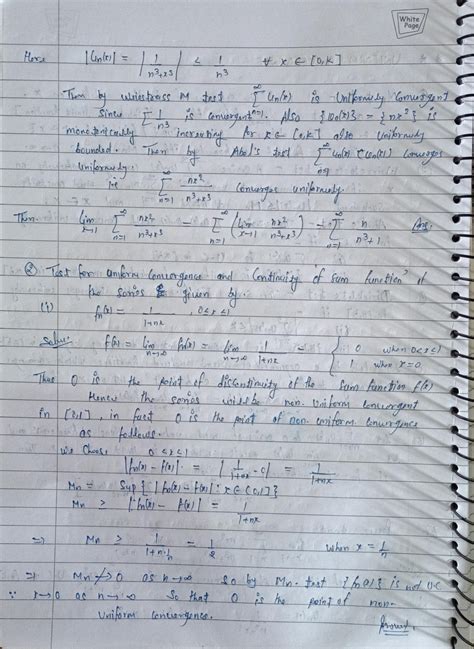 White
Page
Here |Un(x)| = | 1/(n³+x³) | ≤ 1/n³ ∀ x ∈ [0,k]
Then by weierstrass M test ∑_{n=1}^∞ Un(x) is Uniformly Convergent
Since ∑ 1/n³ is convergent. Also {Vn(x)} = {nx²} is
monotonically increasing for x ∈ [0,k] also uniformly
bounded. Then by Abel's test ∑_{n=1}^∞ Un(x) Vn(x) converges
uniformly.
ie ∑_{n=1}^∞ nx²/(n³+x³) converges uniformly
Then lim_{x→1} ∑_{n=1}^∞ nx²/(n³+x³) = ∑_{n=1}^∞ (lim_{x→1} nx²/(n³+x³)) = ∑_{n=1}^∞ n/(n³+1) Ans.
Q Test for uniform convergence and Continuity of sum function of
the series given by
(i) fn(x) = 1/(1+nx), 0≤x≤1
Solun: f(x) = lim_{n→∞} fn(x) = lim_{n→∞} 1/(1+nx) = { 0 when 0<x≤1
1 when x=0
Thus 0 is the point of discontinuity of the sum function f(x)
Hence the series will be non. Uniform convergent
in [0,1], in fact 0 is the point of non uniform convergence
as follows.
we choose 0<x≤1
|fn(x) - f(x)| = | 1/(1+nx) - 0 | = 1/(1+nx)
Mn = Sup { |fn(x) - f(x)| : x ∈ [0,1] }
Mn ≥ |fn(x) - f(x)| = 1/(1+nx)
⇒ Mn ≥ 1/(1+n·1/n) = 1/2 when x = 1/n
⇒ Mn ↛ 0 as n→∞ So by Mn. test {fn(x)} is not UC
∵ x→0 as n→∞ So that 0 is the point of non-
Uniform convergence. Proved.